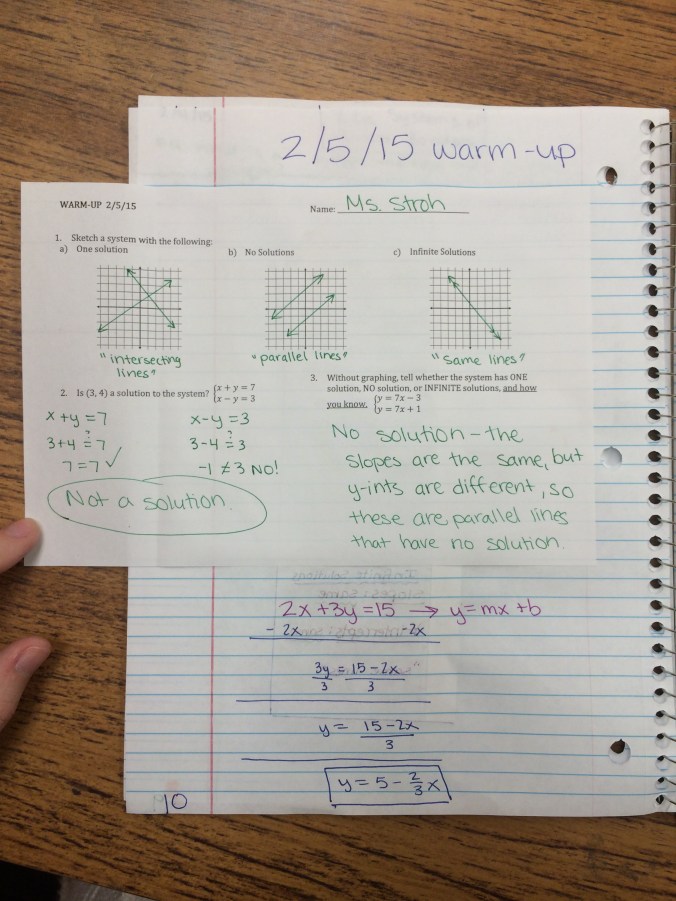 2/5/15 warm-up
WARM-UP 2/5/15
Name: Ms. Stroh
1. Sketch a system with the following:
a) One solution
b) No Solutions
c) Infinite Solutions
"intersecting
lines"
"parallel lines"
"same lines"
2. Is (3, 4) a solution to the system? {x + y = 7
x − y = 3
x + y = 7
3+4 ≟ 7
7=7 ✓
x-y=3
3-4 ≟ 3
-1 ≠ 3 NO!
Not a solution.
3. Without graphing, tell whether the system has ONE
solution, NO solution, or INFINITE solutions, and how
you know. {y = 7x − 3
y = 7x + 1
No solution - the
slopes are the same, but
y-ints are different, so
these are parallel lines
that have no solution.
2x+3y=15 → y=mx+b
- 2x -2x
3y = 15-2x
3 3
y = 15-2x
3
y = 5 - 2/3 x
10